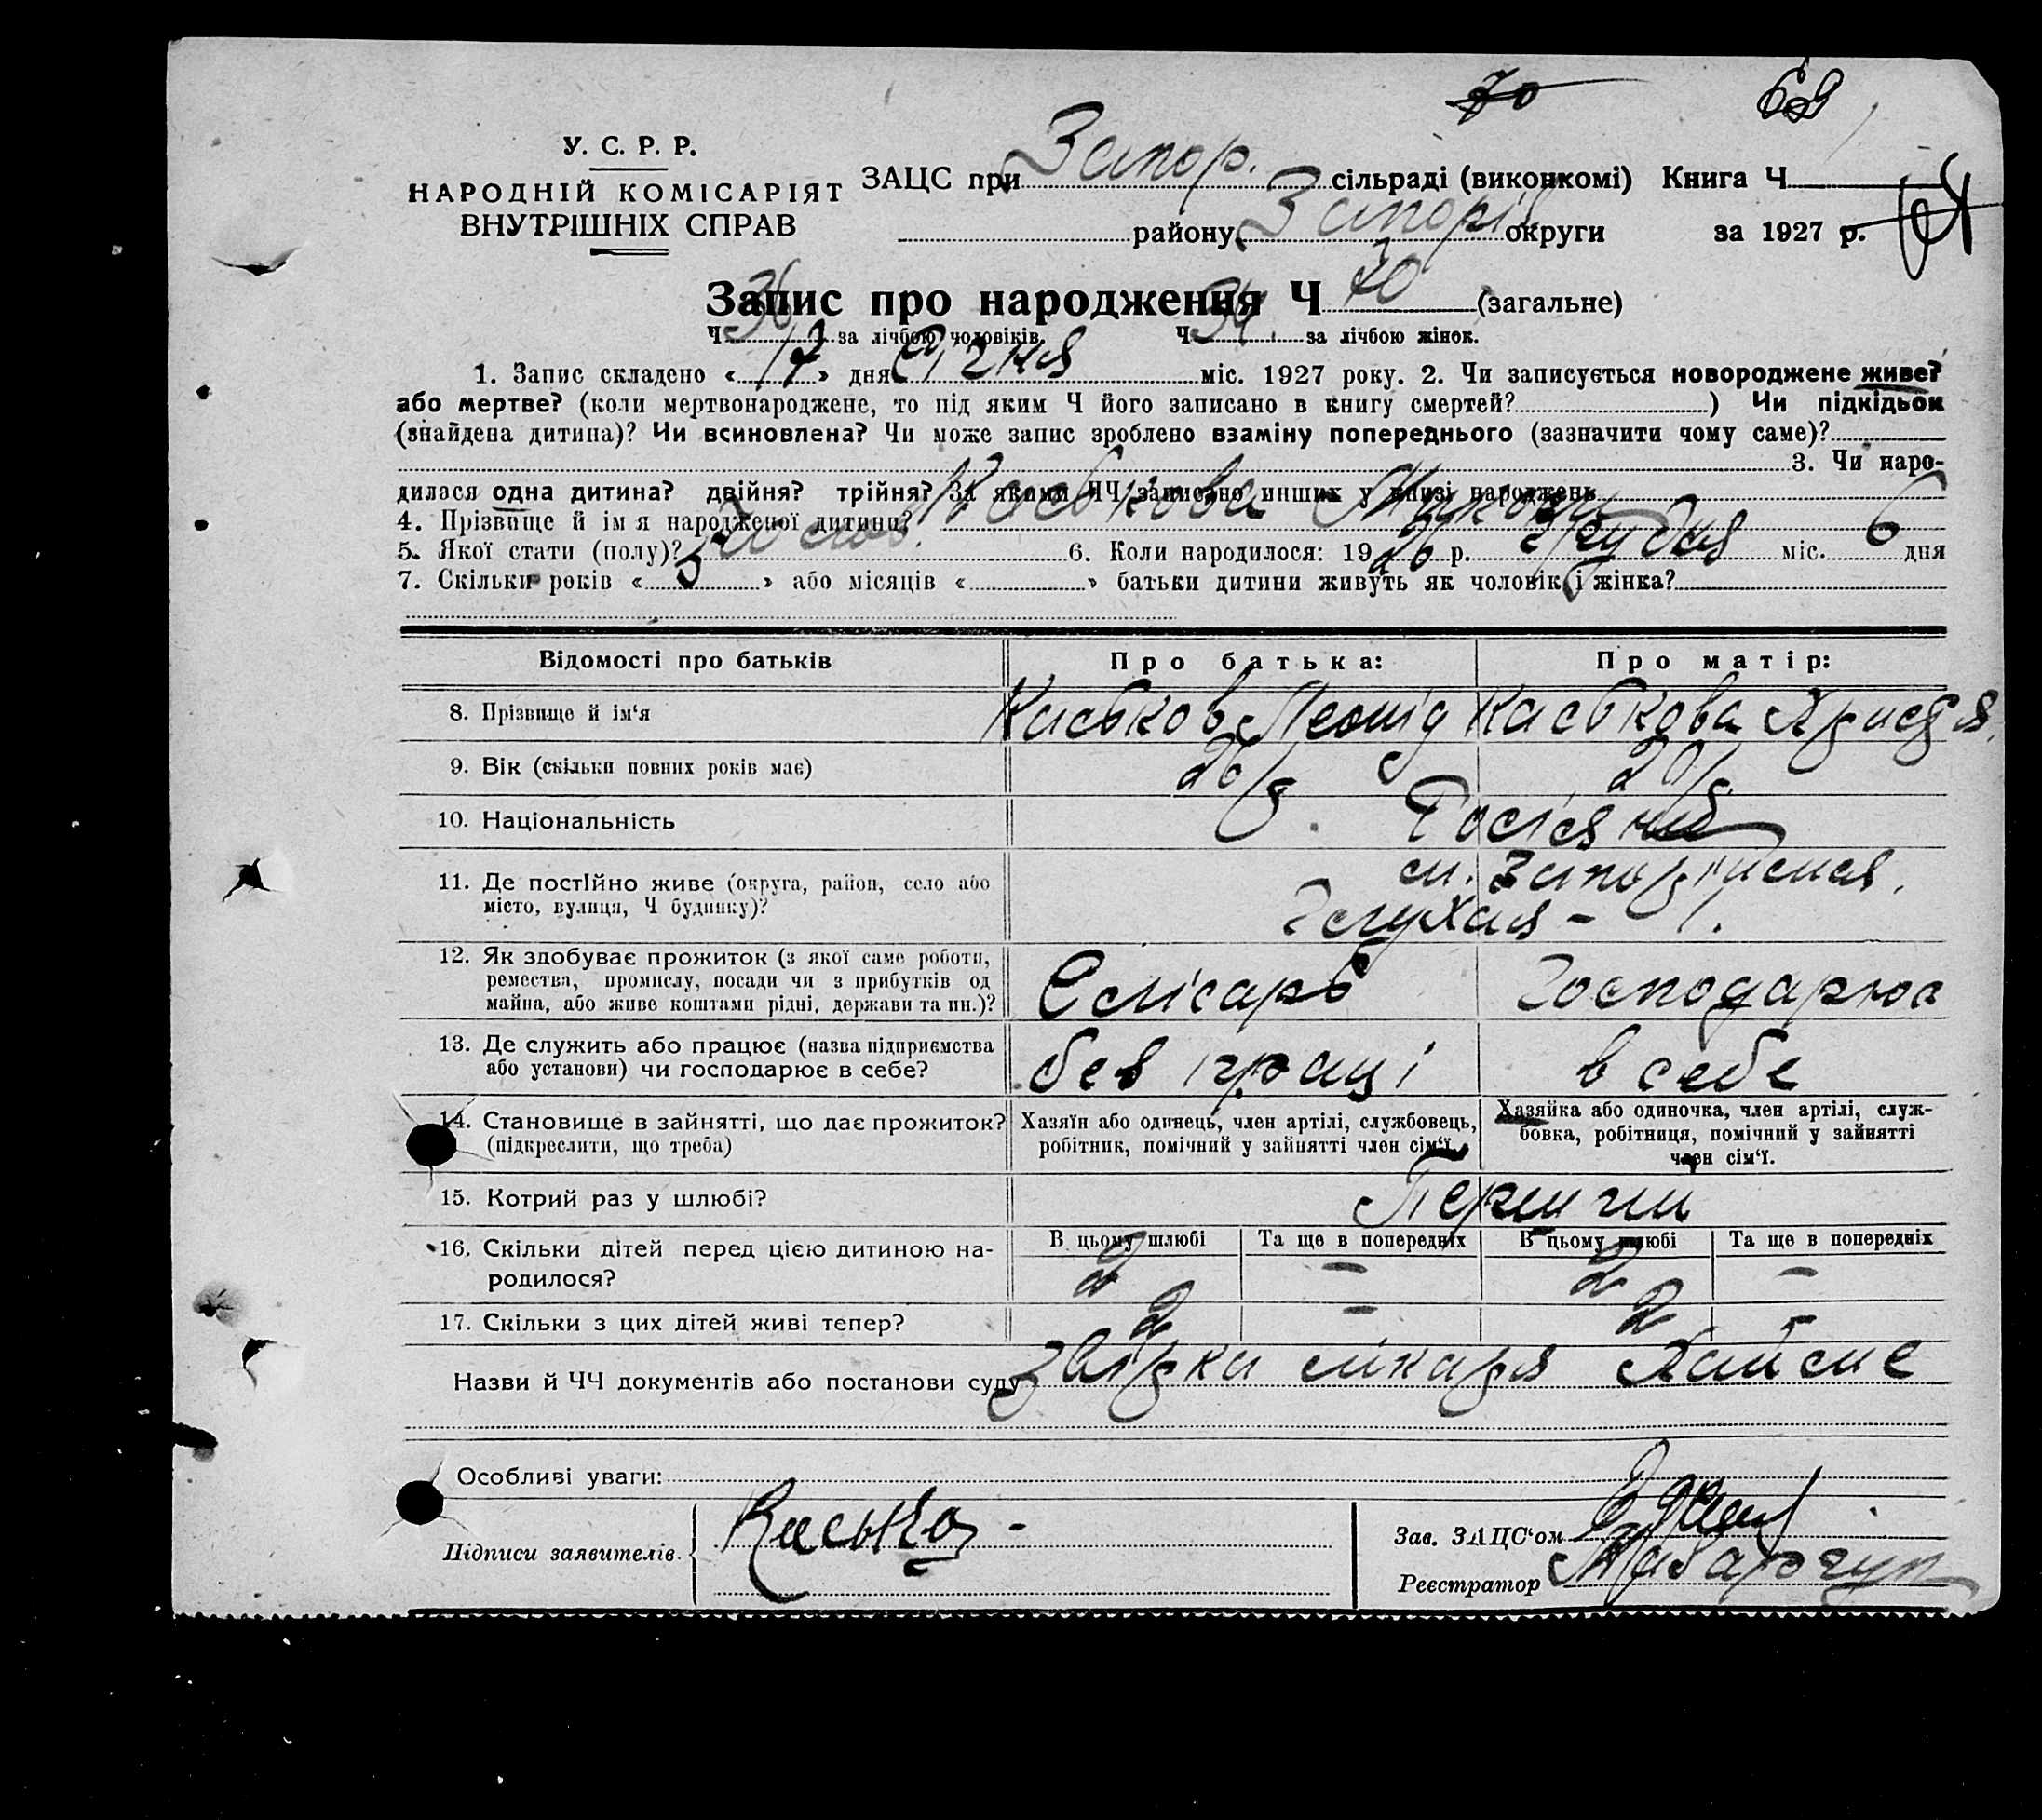 70 69
У. С. Р. Р.
НАРОДНІЙ КОМІСАРІЯТ
ВНУТРІШНІХ СПРАВ
ЗАЦС при Запор. сільраді (виконкомі) Книга Ч
району Запоріз округи за 1927 р.
Запис про народження Ч 70 (загальне)
Ч 36 за лічбою чоловіків Ч 34 за лічбою жінок.
1. Запис складено « 17 » дня Січня міс. 1927 року. 2. Чи записується новороджене живе?
або мертве? (коли мертвонароджене, то під яким Ч його записано в книгу смертей? ) Чи підкідьок
(знайдена дитина)? Чи всиновлена? Чи може запис зроблено взаміну попереднього (зазначити чому саме)?
3. Чи наро-
дилася одна дитина? двійня? трійня? За якими ЧЧ записано инших у книзі народжень
4. Прізвище й ім я народженої дитини? Каськова
5. Якої стати (полу)? Чолов. 6. Коли народилося: 19 26 р. Грудня міс. 6 дня
7. Скільки років « 5 » або місяців « » батьки дитини живуть як чоловік і жінка?
Відомості про батьків Про батька: Про матір:
8. Прізвище й ім‘я Каськов Леонід Каськова Христя
9. Вік (скільки повних років має) 26/ 20/
10. Національність Росіяни
11. Де постійно живе (округа, район, село або
місто, вулиця, Ч будинку)? м. Запоріжжя
12. Як здобуває прожиток (з якої саме роботи,
ремества, промислу, посади чи з прибутків од
майна, або живе коштами рідні, держави та ин.)? Слюсарь Господарює
13. Де служить або працює (назва підприємства
або установи) чи господарює в себе? без праці в себе
14. Становище в зайнятті, що дає прожиток?
(підкреслити, що треба)
Хазяїн або одинець, член артілі, службовець,
робітник, помічний у зайнятті член сім‘ї.
Хазяйка або одиночка, член артілі, служ-
бовка, робітниця, помічний у зайнятті
член сім‘ї.
15. Котрий раз у шлюбі? Перший
16. Скільки дітей перед цією дитиною на-
родилося?
В цьому шлюбі Та ще в попередніх В цьому шлюбі Та ще в попередніх
2 – 2 –
17. Скільки з цих дітей живі тепер? 2 – 2 –
Назви й ЧЧ документів або постанови суду лікаря
Особливі уваги:
Підписи заявителів Каськов
Зав. ЗАЦС‘ом
Реєстратор